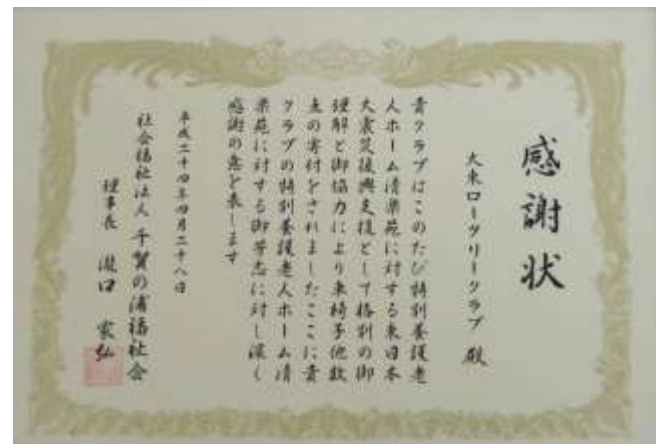 感謝状
大東ロータリークラブ 殿
貴クラブはこのたび特別養護老
人ホーム清楽苑に対する東日本
大震災復興支援として格別の御
理解と御協力により車椅子他数
点の寄付をされましたここに貴
クラブの特別養護老人ホーム清
楽苑に対する御芳志に対し深く
感謝の意を表します
平成二十四年四月二十八日
社会福祉法人 千賀の浦福祉会
理事長 瀧口 家弘